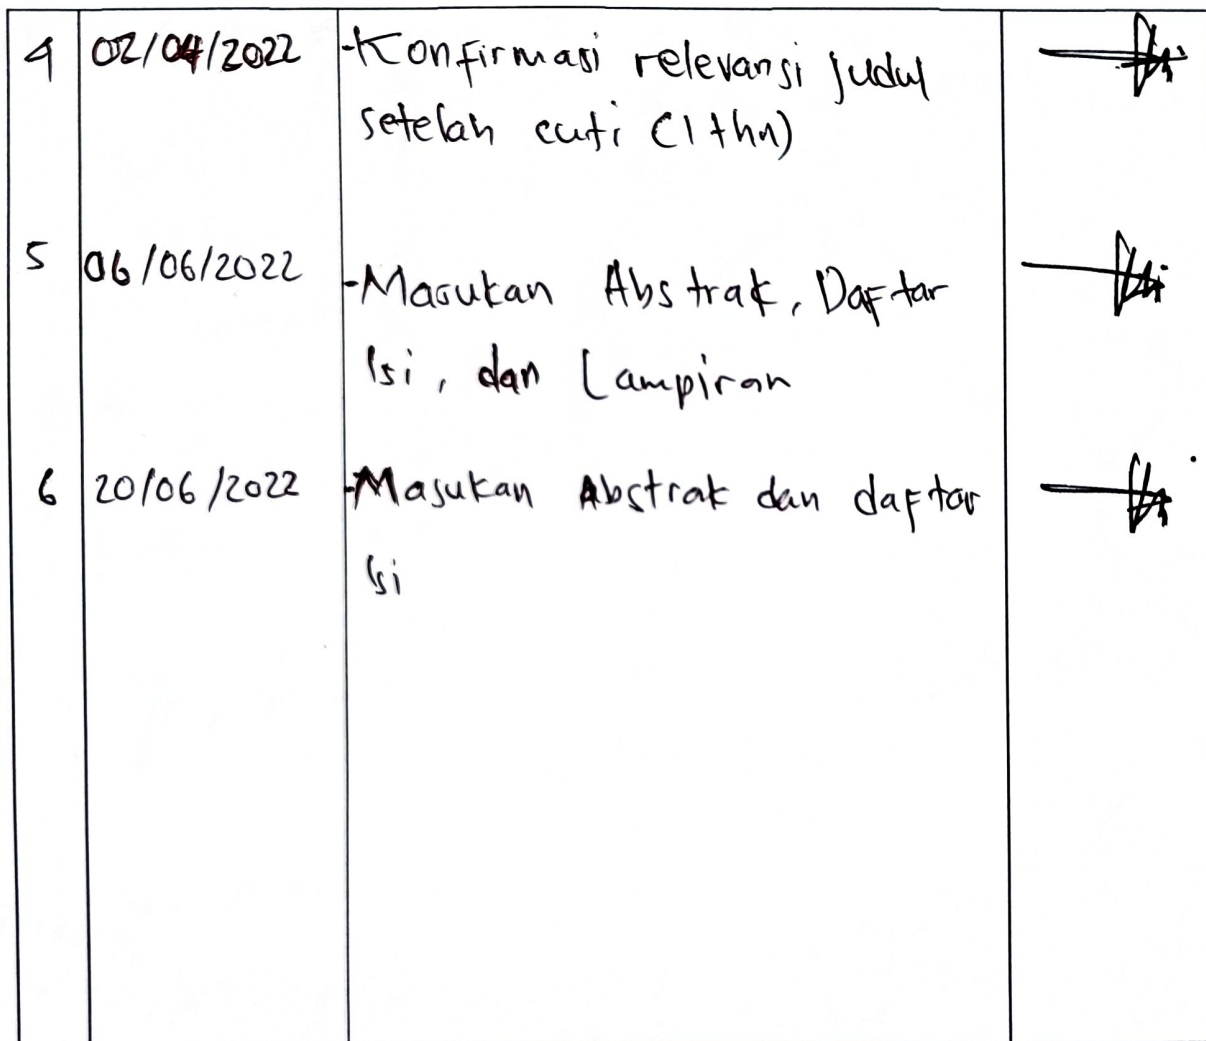 4 02/04/2022 -Konfirmasi relevansi judul
setelah cuti (1 thn)
5 06/06/2022 -Masukan Abstrak, Daftar
Isi, dan Lampiran
6 20/06/2022 -Masukan Abstrak dan daftar
Isi